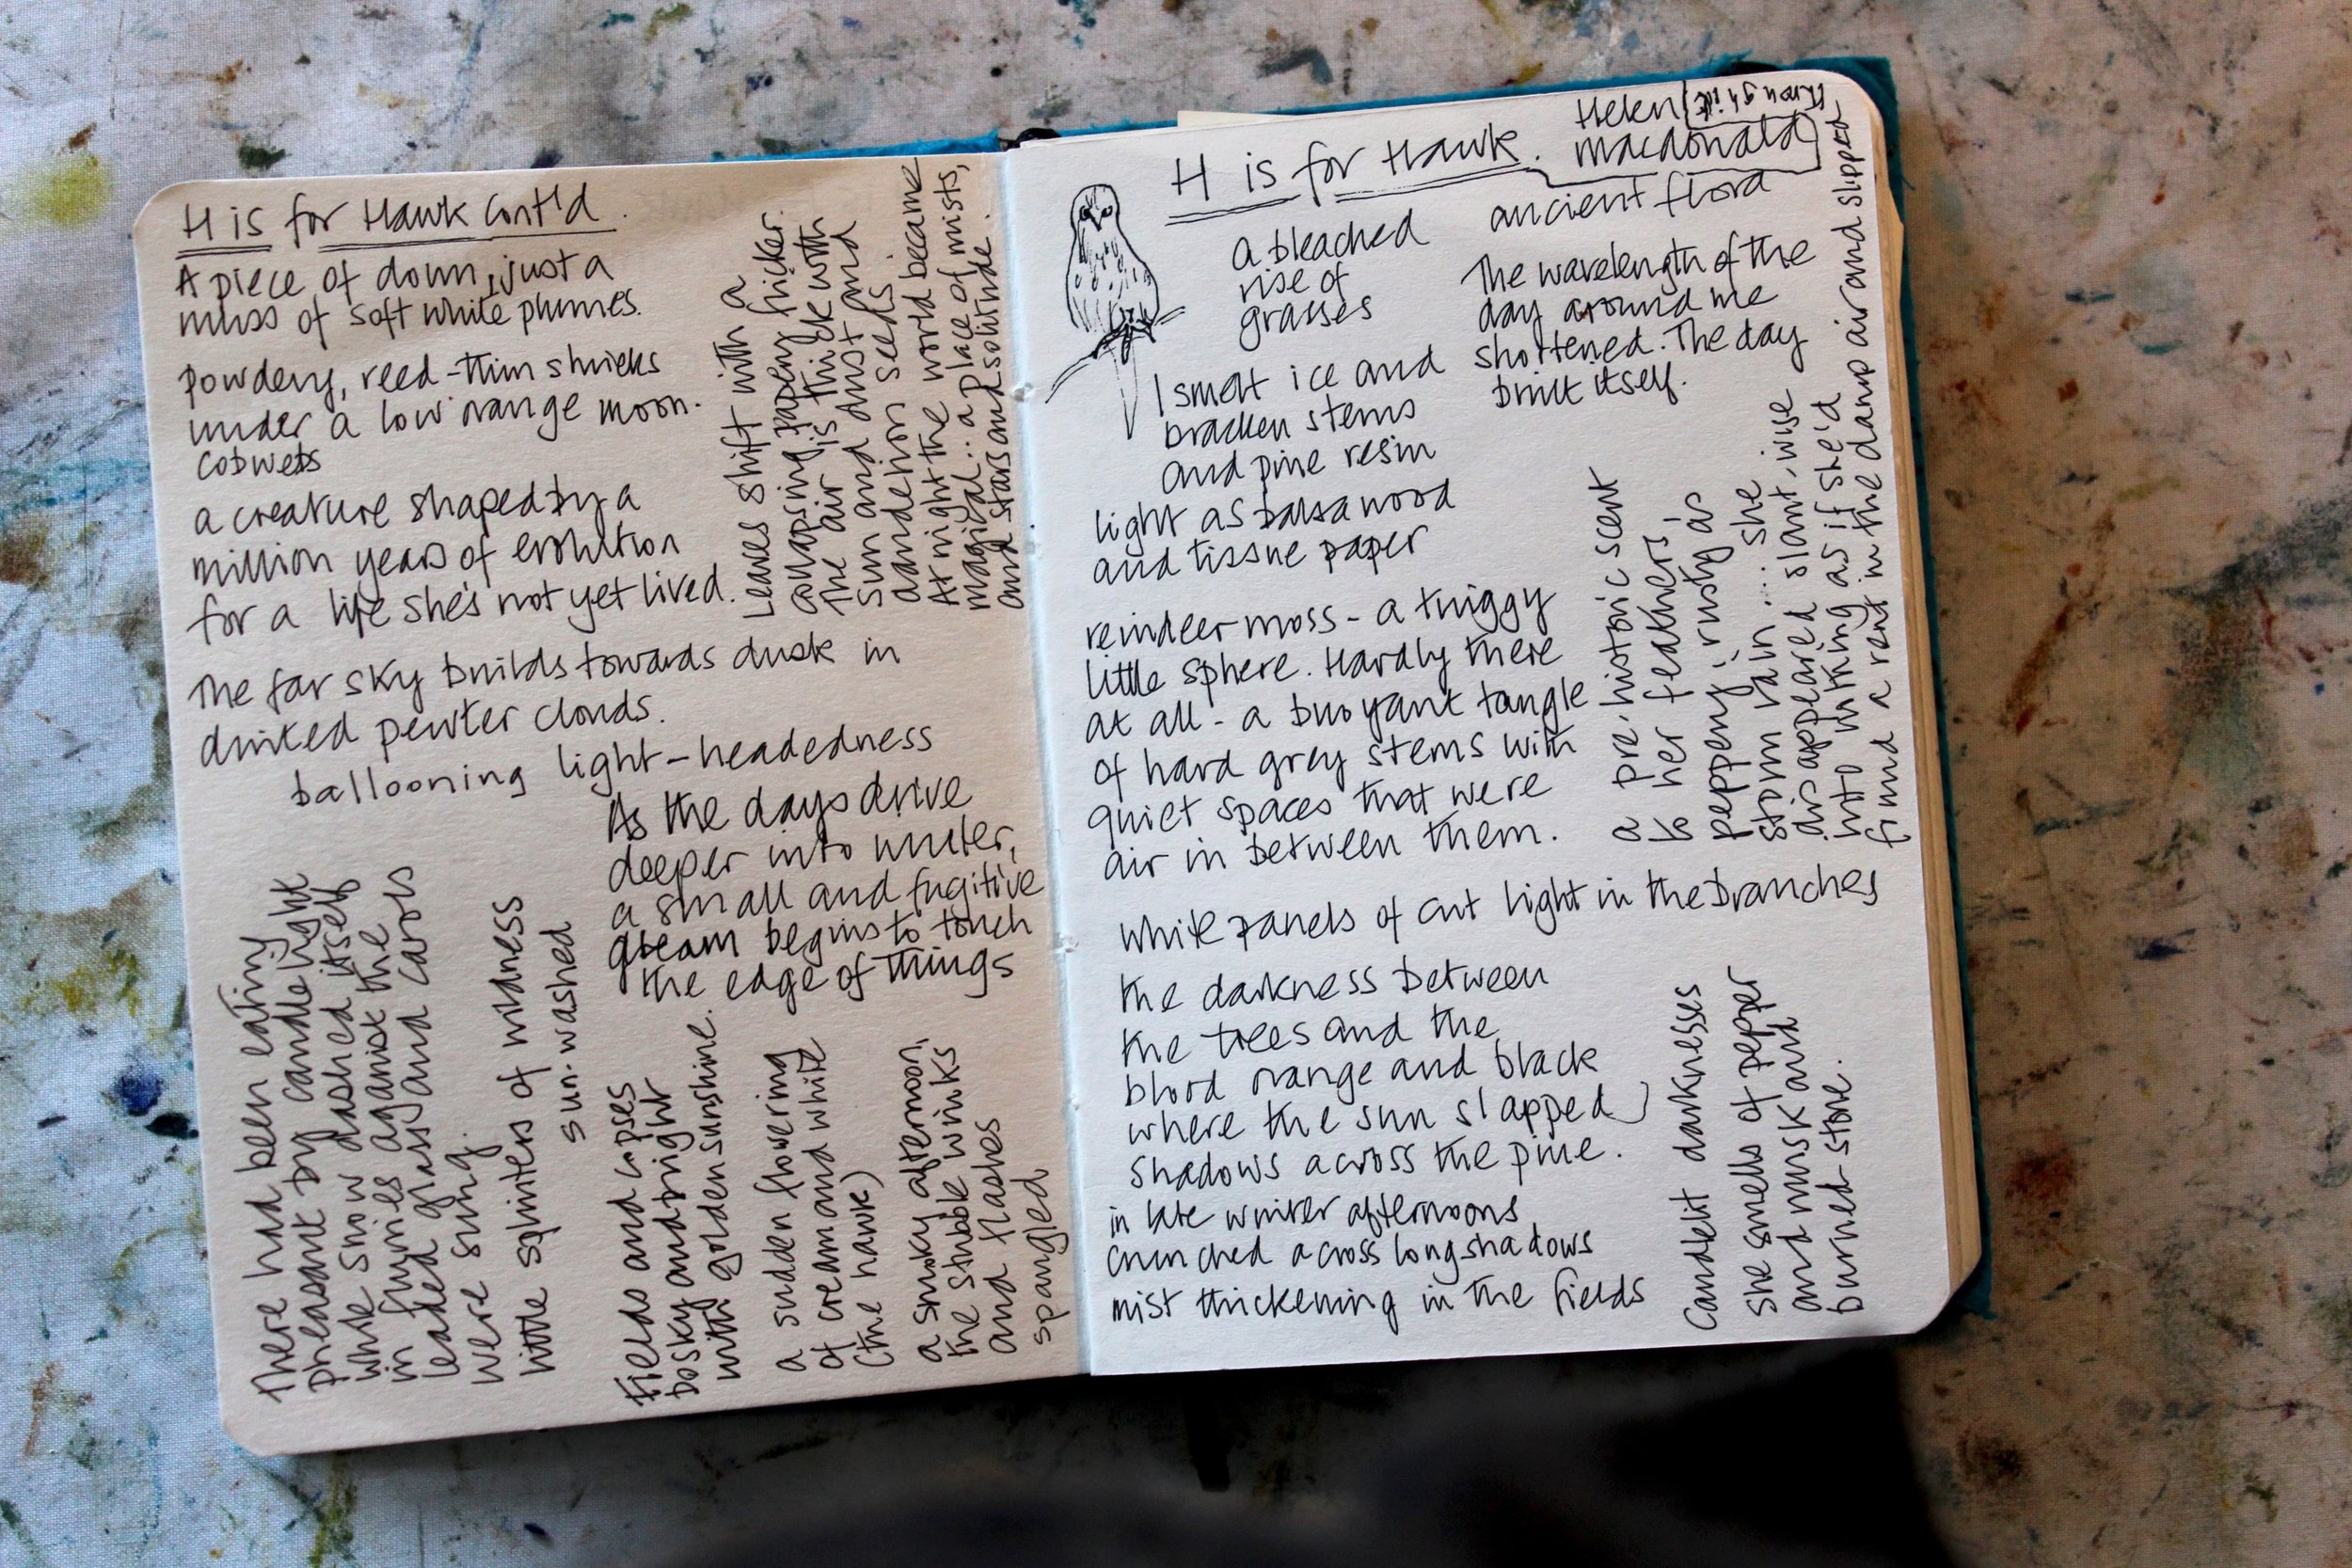 H is for Hawk Cont'd.
A piece of down, just a
muss of soft white plumes.
powdery, reed-thin shrieks
under a low orange moon.
cobwebs
a creature shaped by a
million years of evolution
for a life she's not yet lived.
The far sky builds towards dusk in
drifted pewter clouds.
ballooning light-headedness
As the days drive
deeper into winter,
a small and fugitive
gleam begins to touch
the edge of things
Leaves shift with a
collapsing, papery flicker.
The air is thick with
sun and dust and
dandelion seeds.
At night the world became
magical... a place of mists,
and stars and solitude.
There had been eating
pheasant by candlelight
while snow dashed itself
in furies against the
leaded glass and carols
were sung.
little splinters of wildness
sun-washed
Fields and copses
bosky and bright
with golden sunshine.
a sudden flowering
of cream and white
(the hawk)
a smoky afternoon,
the stubble winks
and flashes
spangled
H is for Hawk.
Helen
Macdonald
a bleached
rise of
grasses
ancient flora
The wavelength of the
day around me
shortened. The day
built itself.
I smelt ice and
bracken stems
and pine resin
light as balsa wood
and tissue paper
reindeer moss - a twiggy
little sphere. Hardly there
at all - a buoyant tangle
of hard grey stems with
quiet spaces that were
air in between them.
a pre-historic scent
to her feathers,
peppery, rusty as
storm rain.... she
disappeared slant-wise
into nothing as if she'd
found a rent in the damp air and slipped
through it
white panels of cut light in the branches
the darkness between
the trees and the
blood orange and black
where the sun slapped
shadows across the pine.
in late winter afternoons
crunched across long shadows
mist thickening in the fields
Candlelit darknesses
she smells of pepper
and musk and
burned stone.